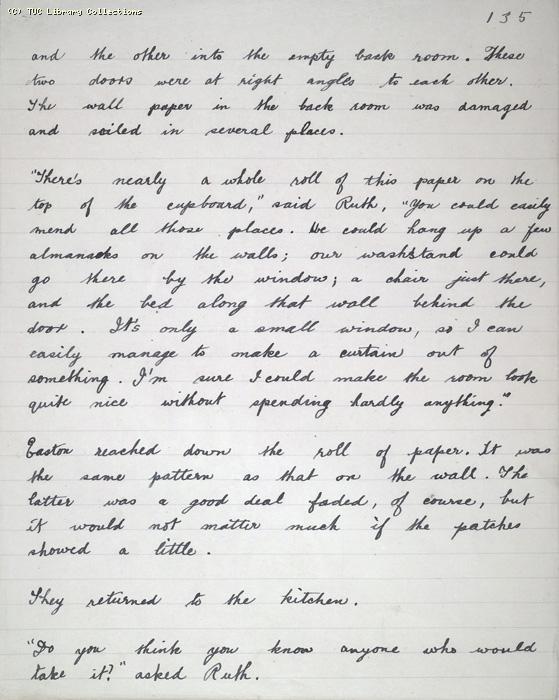 (C) TUC Library Collections
135
and the other into the empty back room. These
two doors were at right angles to each other.
The wall paper in the back room was damaged
and soiled in several places.
"There's nearly a whole roll of this paper on the
top of the cupboard," said Ruth, "You could easily
mend all those places. We could hang up a few
almanacks on the walls; our washstand could
go there by the window; a chair just there,
and the bed along that wall behind the
door. It's only a small window, so I can
easily manage to make a curtain out of
something. I'm sure I could make the room look
quite nice without spending hardly anything."
Easton reached down the roll of paper. It was
the same pattern as that on the wall. The
latter was a good deal faded, of course, but
it would not matter much if the patches
showed a little.
They returned to the kitchen.
"Do you think you know anyone who would
take it?" asked Ruth.